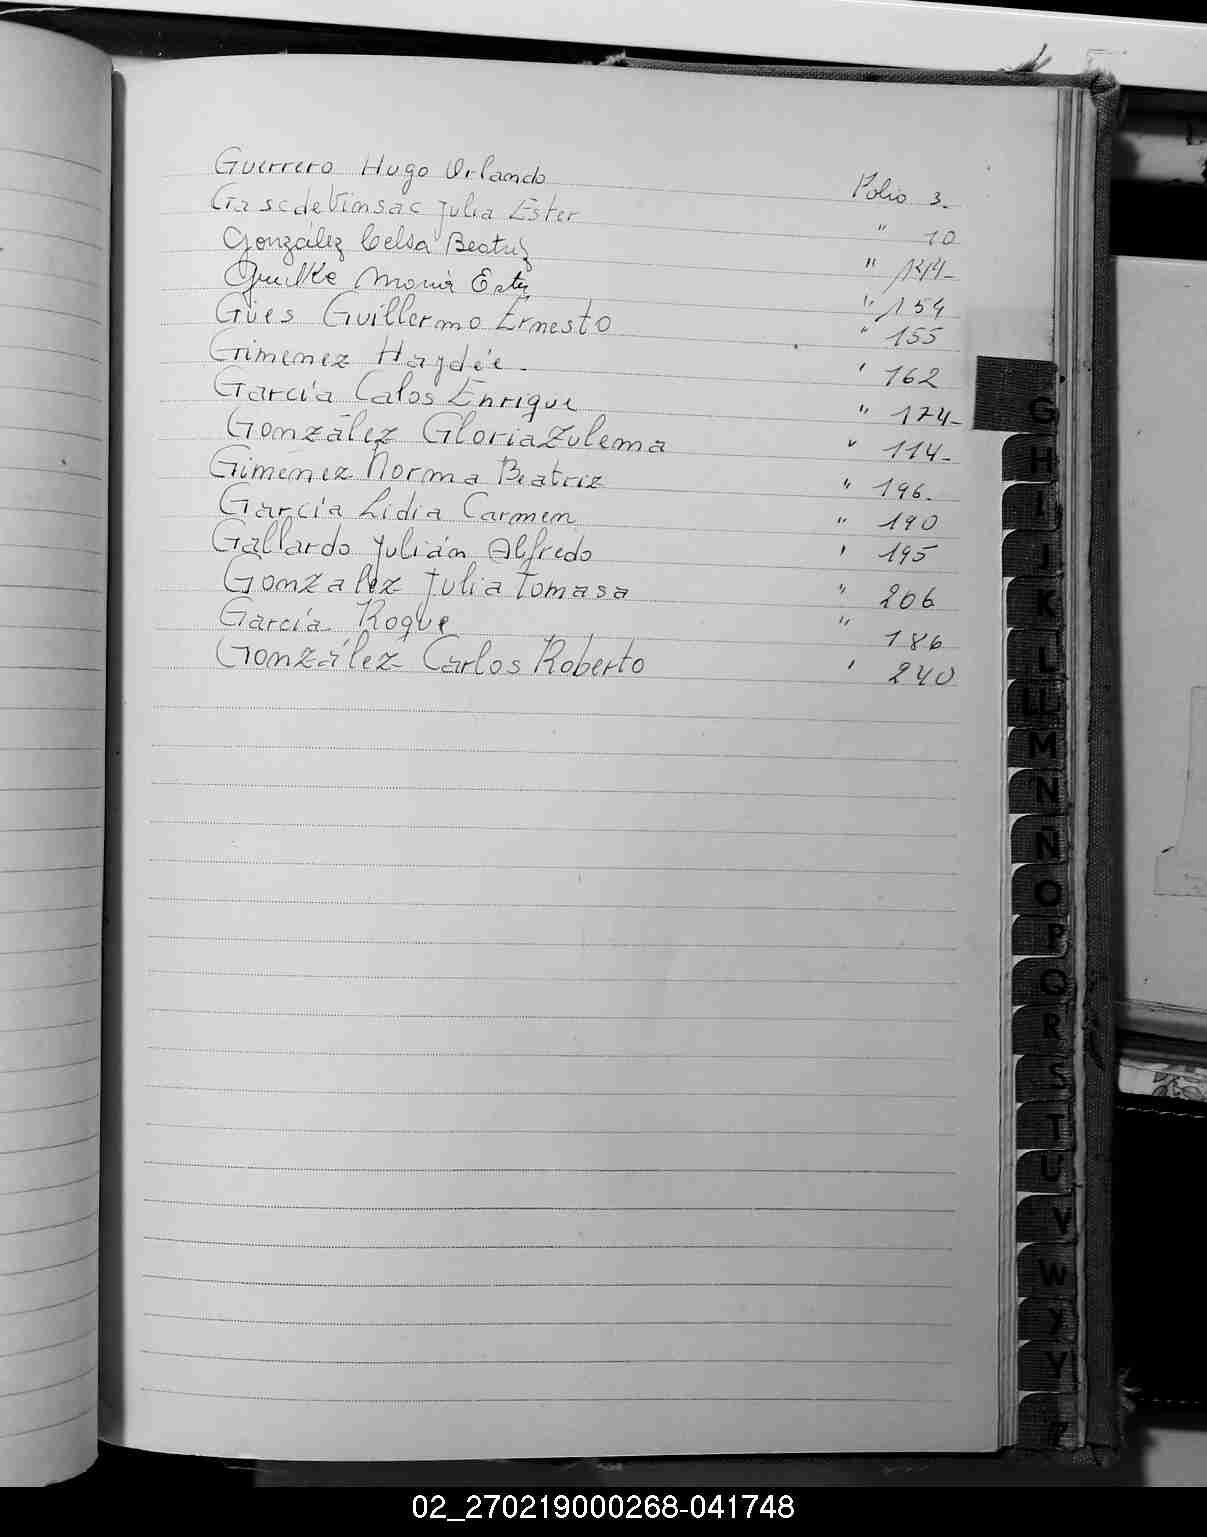 Guerrero Hugo Orlando Folio 3.
Gascde Vimsac Julia Ester " 10
González Celia Beatriz " 144-
María Ester " 154
Gües Guillermo Ernesto " 155
Gimenez Haydée. ' 162
García Calos Enrique " 174-
González Gloria Zulema " 114-
Gimenez Norma Beatriz " 196.
García Lidia Carmen " 190
Gallardo Julián Alfredo ' 195
Gonzalez Julia Tomasa " 206
García Roque " 186
González Carlos Roberto ' 240
G
H
I
J
K
L
LL
M
N
Ñ
O
P
Q
R
S
T
U
V
W
X
Y
Z
02_270219000268-041748